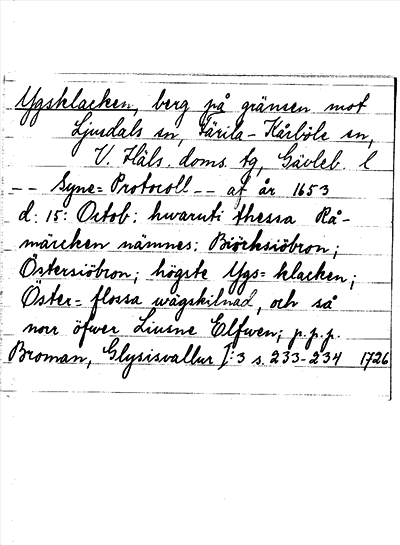 Ygsklacken, berg på gränsen mot
Ljusdals sn, Färila-Kårböle sn,
V. Häls. doms. tg, Gävleb. l
-- Syne= Protocoll -- af år 1653
d: 15: Octob: hwaruti thessa Rå-
märcken nämnes: Biörcksiöbron;
Östersiöbron; högste Ygs= klacken;
Öster= flossa wägskilnad, och så
norr öfwer Liusne Elfwen; p.p.p.
Broman, Glysisvallur I:3 s. 233-234 1726